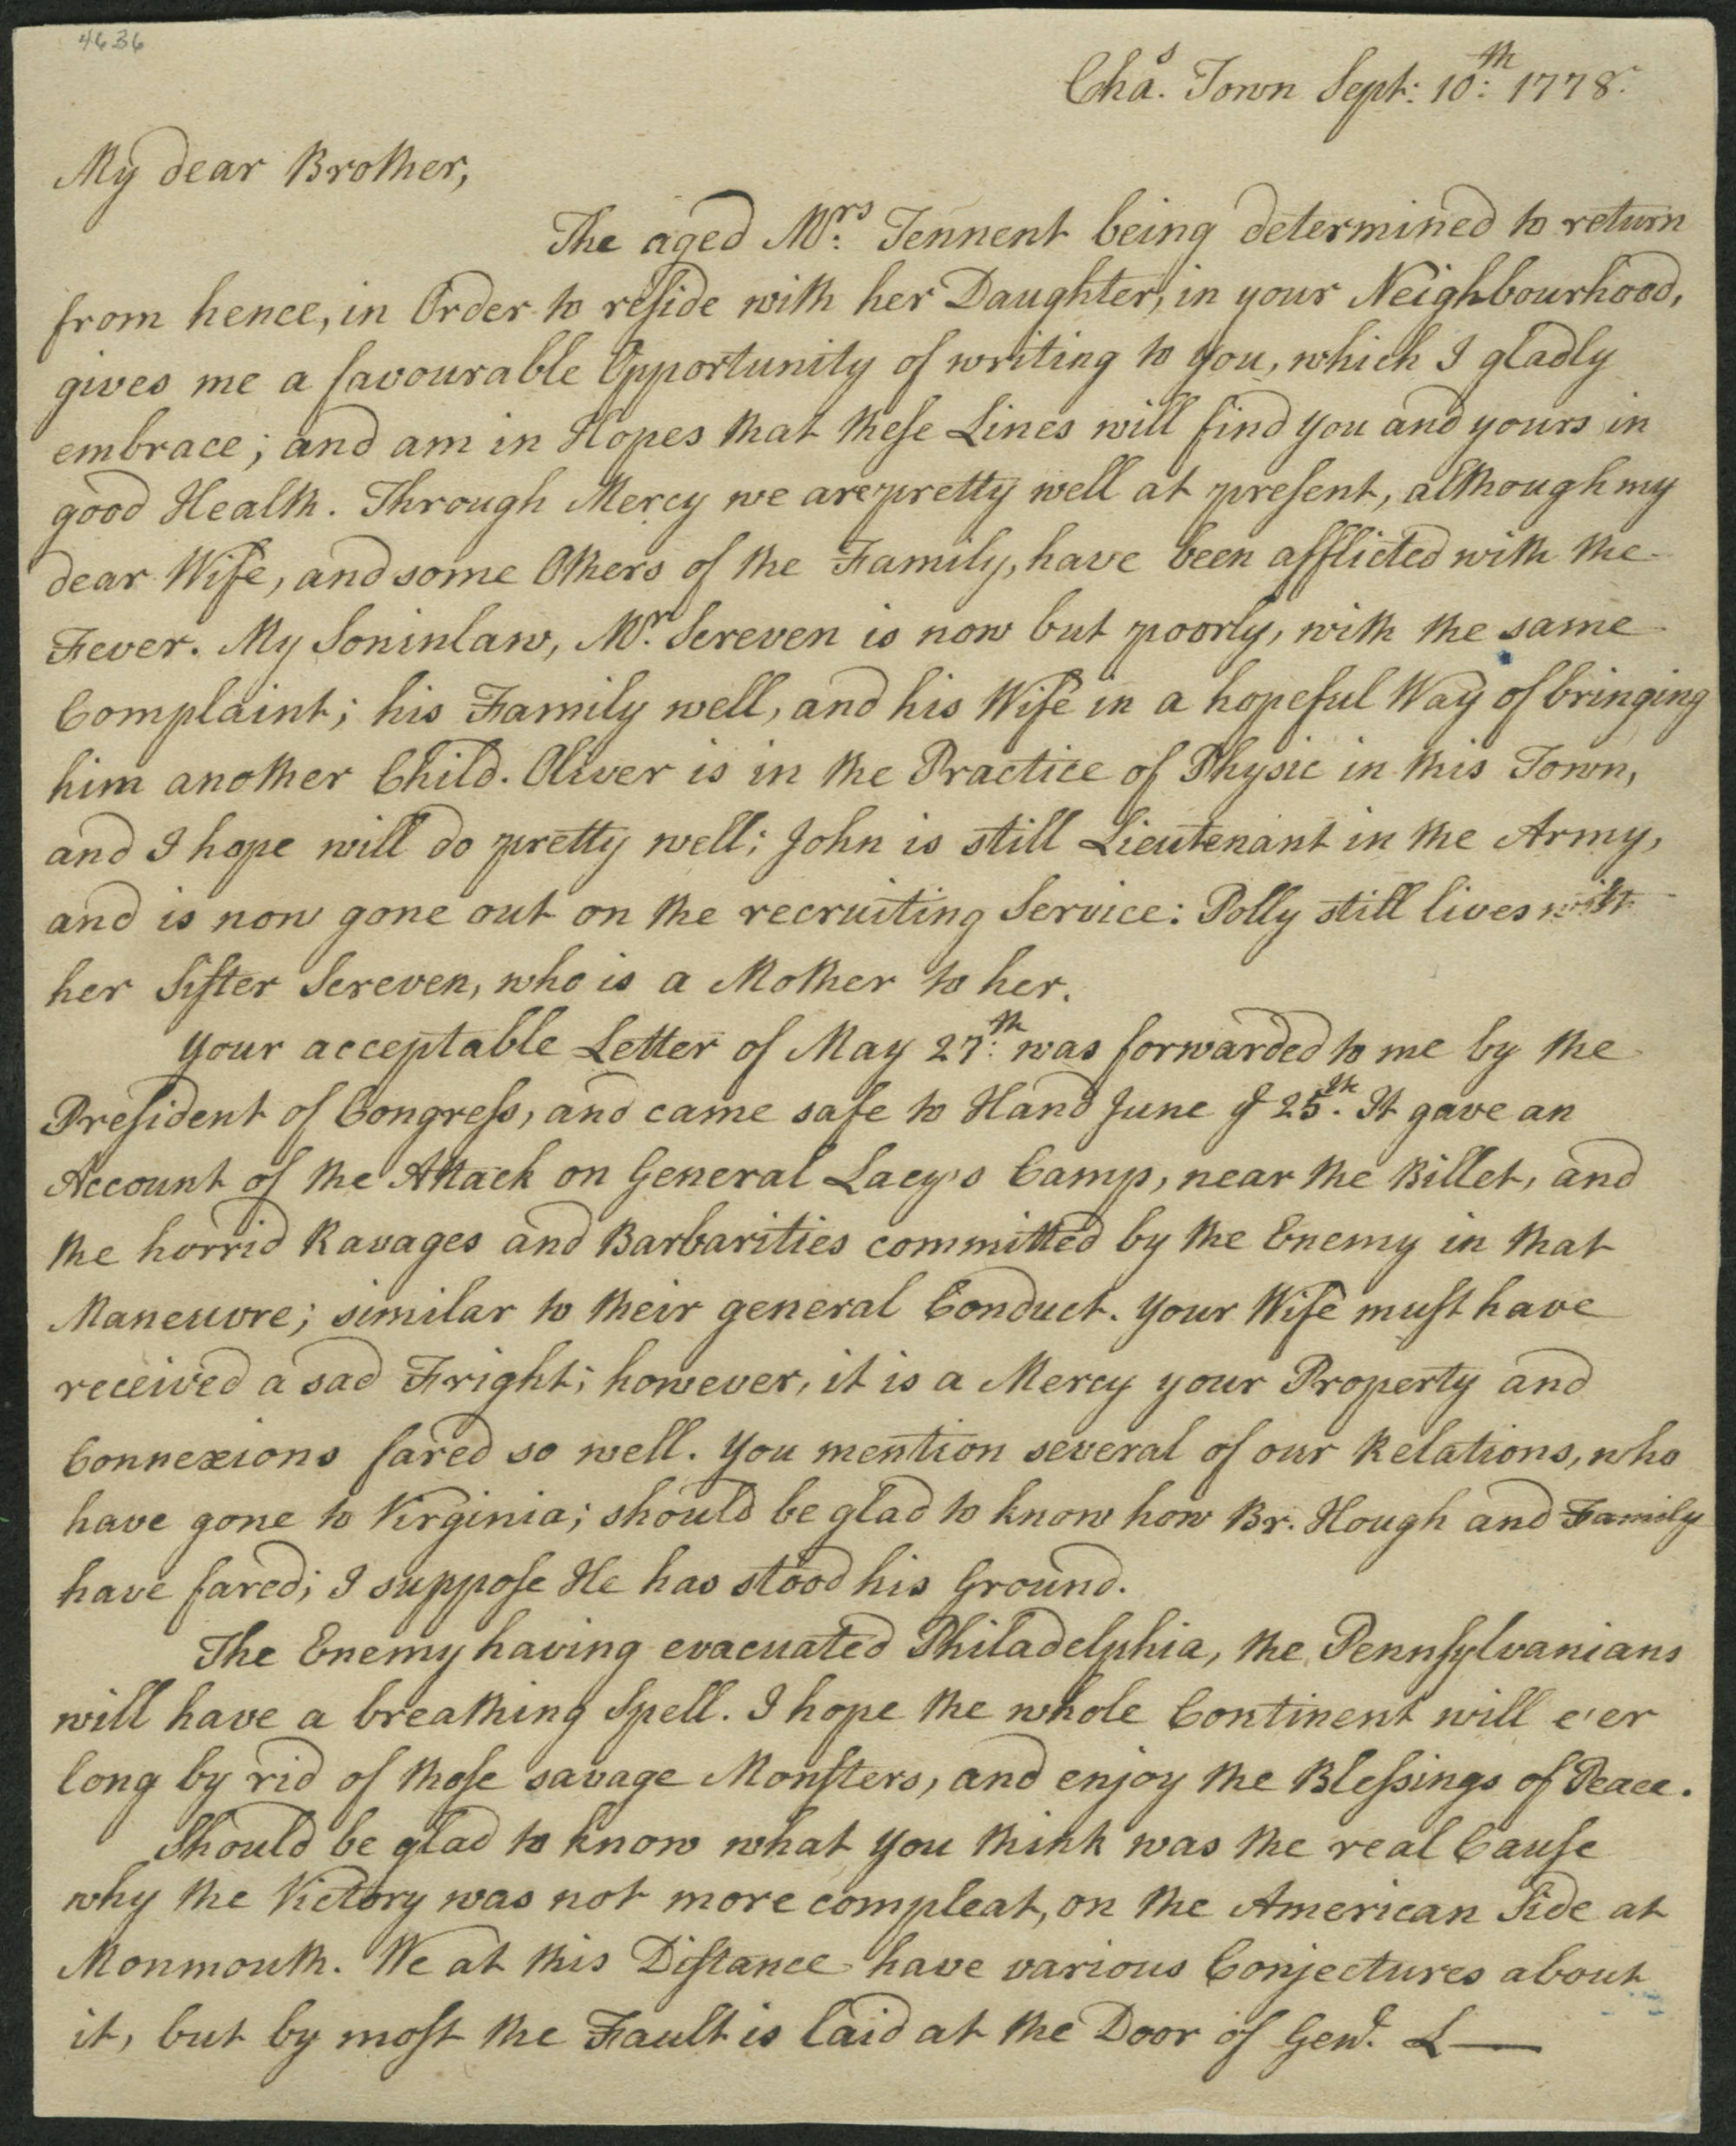 4636
Cha.s Town Sept: 10:th 1778.
My dear Brother,
The aged Mrs: Tennent being determined to return
from hence, in Order to reſide with her Daughter, in your Neighbourhood,
gives me a favourable Opportunity of writing to you, which I gladly
embrace; and am in Hopes that theſe Lines will find you and yours in
good Health. Through Mercy we are pretty well at preſent, although my
dear Wife, and some Others of the Family, have been afflicted with the
Fever. My Soninlaw, Mr. Screven is now but poorly, with the same
Complaint; his Family well, and his Wife in a hopeful Way of bringing
him another Child. Oliver is in the Practice of Physic in this Town,
and I hope will do pretty well; John is still Lieutenant in the Army,
and is now gone out on the recruiting Service: Polly still lives with
her Siſter Screven, who is a Mother to her.
Your acceptable Letter of May 27:th was forwarded to me by the
Preſident of Congreſs, and came safe to Hand June ye 25th. It gave an
Account of the Attack on General Lacy's Camp, near the Billet, and
the horrid Ravages and Barbarities committed by the Enemy in that
Maneuvre; similar to their general Conduct. Your Wife muſt have
received a sad Fright; however, it is a Mercy your Property and
Connexions fared so well. You mention several of our Relations, who
have gone to Virginia; should be glad to know how Br. Hough and Family
have fared; I suppoſe He has stood his Ground.
The Enemy having evacuated Philadelphia, the Pennſylvanians
will have a breathing Spell. I hope the whole Continent will e'er
long by rid of thoſe savage Monſters, and enjoy the Bleſsings of Peace.
Should be glad to know what you think was the real Cauſe
why the Victory was not more compleat, on the American Side at
Monmouth. We at this Diſtance have various Conjectures about
it, but by moſt the Fault is laid at the Door of Genl. L—